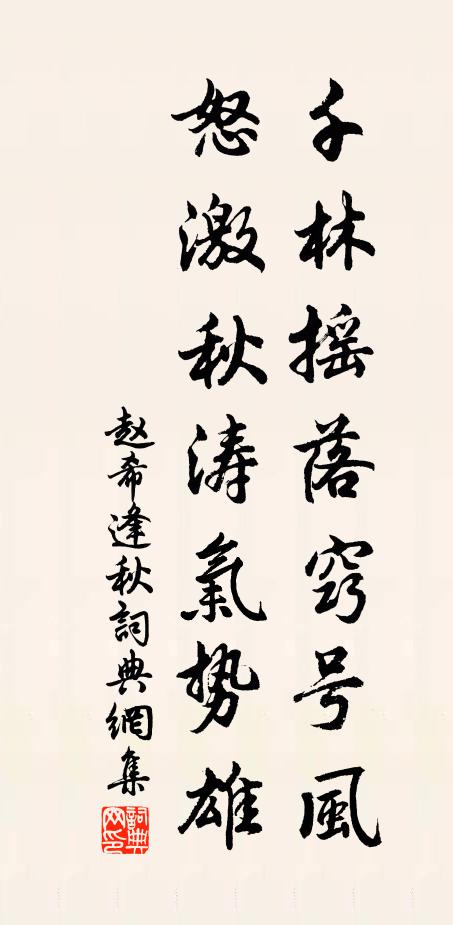 千林摇落窍号風
怒激秋涛氣势雄
赵希逢秋詞典網集
詞典網印